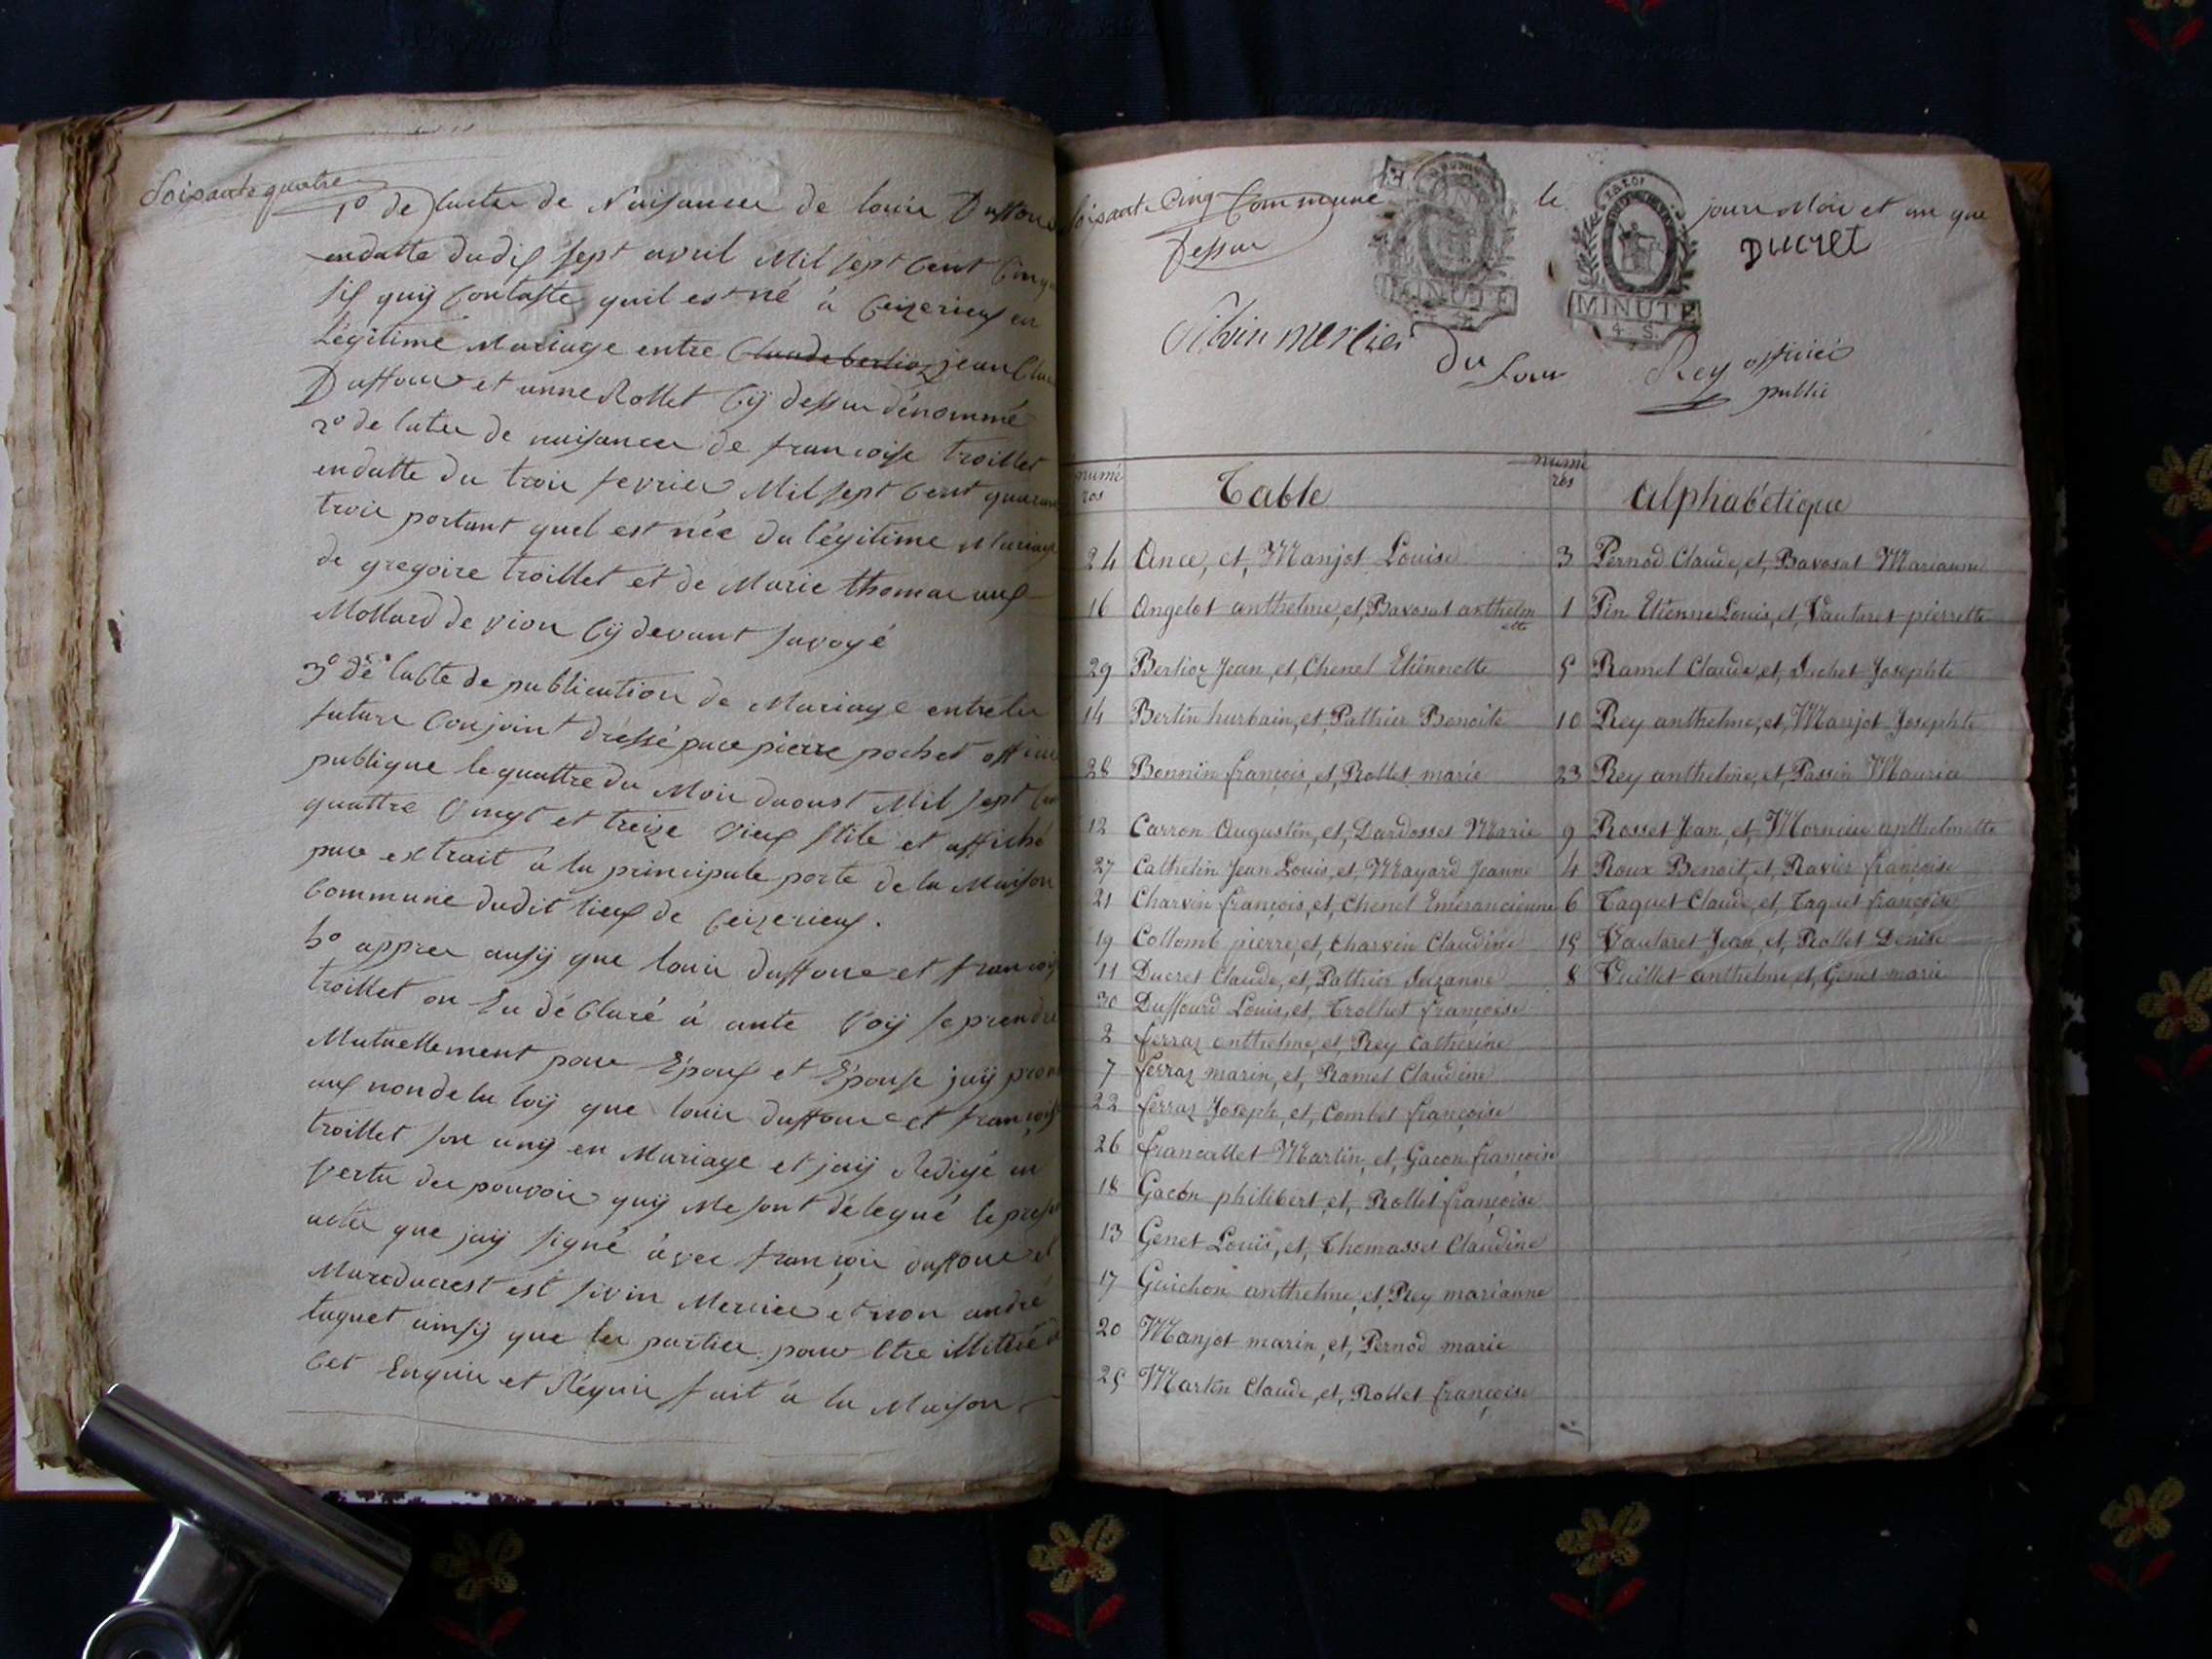 Soisante quatre
1º de lactee de Naisance de louis Duffour
endatte dudis sept avril Mil sept Cent Cinq
sis quÿ Contaste quil est né à Ceizerieux en
Légitime Mariage entre Claude berlioz jean Clau
Duffour et anne Rollet Cÿ dessu dénommé
2º de latee de naisance de francoise troillet
endatte du trois fevrier Mil sept Cent quaran
trois portant quel est née du légitime Mariage
de gregoire troillet et de Marie thomas aux
Mollard de vion Cÿ devant savoyé
3º de lacte de publication de Mariage entreles
futurs Conjoint dréssé par pierre pochet offici
publique le quattre du Mois daoust Mil sept Cen
quattre Vingt et treize vieux stile et affiché
par extrait à la principale porte de la Maison
Commune dudit lieux de Ceizerieux.
apprés ausÿ que louis duffour et françois
troillet on Eu déClaré à aute Voÿ se prendre
Mutuellement pour Epoux et Epouse jaÿ pron
aux nom de la loÿ que louis duffour et françois
troillet son unÿ en Mariage et jaÿ Redigé en
Vertu des pouvoir quÿ Me sont délegué le presen
actee que jaÿ signé àvec françois duffour et
Marc ducrest est sivin Mercier et non andré
taquet ainsÿ que les parties pour Etre illitéré de
Cet Enquis et Réquis fait à la Maison
soisante Cinq Commune le jour Mois et an que
Dessus
DUCRET
MINUTE
MINUTE
4 S.
Sibvin merlier
du four Rey officier
public
numé
ros Table numé
ros alphabétique
24 Ance, et, Manjot Louise 3 Pernod Claude, et, Bavosat Marianne
16 Angelot anthelme, et, Bavosat anthelm
ette 1 Pin Etienne Louis, et, Vautaret pierrette
29 Berlioz Jean, et, Chenel Etiennette 5 Ramel Claude, et, Sechet Josephte
14 Bertin hurbain, et, Pathier Benoite 10 Rey anthelme, et, Manjot Josephte
28 Bonnin françois, et, Rollet marie 23 Rey anthelme, et, Passin Mauria
12 Carron Augustin, et, Dardosset Marie 9 Rosset Jean, et, Mornieu anthelmette
27 Cathelin Jean Louis, et, Mayard Jeanne 4 Roux Benoit, et, Ravier françoise
21 Charvin françois, et, Chenel Emerancienne 6 Taquet Claude, et, Taquet françoise
19 Collomb pierre, et, Charvin Claudine 15 Vautaret Jean, et, Rollet Denise
11 Ducret Claude, et, Pathier Suzanne 8 Vuillet anthelme, et, Genet marie
30 Duffourd Louis, et, Trolliet françoise
2 ferraz anthelme, et, Rey Catherine
7 ferraz marin, et, Ramel Claudine
22 ferraz Joseph, et, Combet françoise
26 francallet Martin, et, Gacon françoise
18 Gacon philibert, et, Rollet françoise
13 Genet Louis, et, Thomasset Claudine
17 Guichon anthelme, et, Rey marianne
20 Manjot marin, et, Pernod marie
25 Martin Claude, et, Rollet françoise